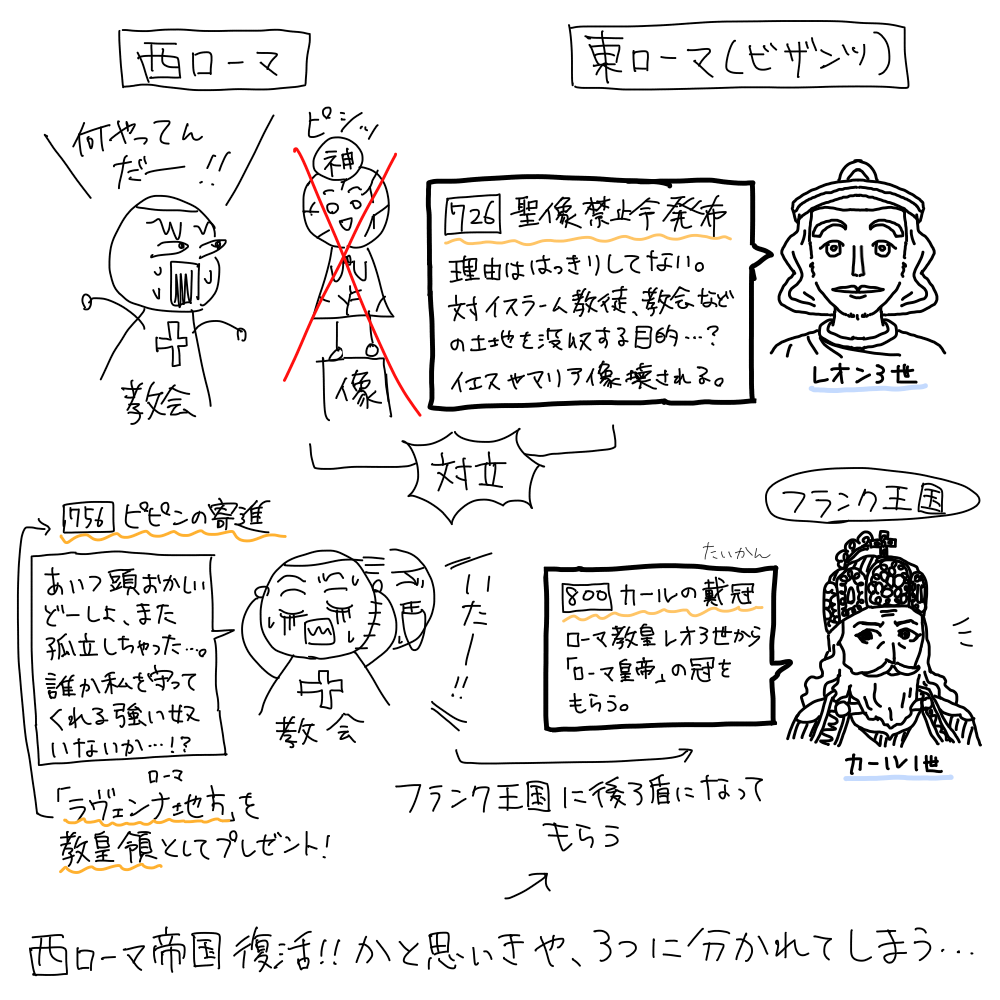 西ローマ
東ローマ(ビザンツ)
何やってん
だー!!
ピシッ
神
像
教会
726 聖像禁止令発布
理由ははっきりしてない。
対イスラーム教徒、教会など
の土地を没収する目的…?
イエスやマリア像壊される。
レオン3世
対立
756 ピピンの寄進
あいつ頭おかしい
どーしよ、また
孤立しちゃった…。
誰か私を守って
くれる強い奴
いないか…!?
教会
いたー!!
フランク王国
たいかん
800 カールの戴冠
ローマ教皇レオ3世から
「ローマ皇帝」の冠を
もらう。
カール1世
ローマ
「ラヴェンナ地方」を
教皇領としてプレゼント!
フランク王国に後ろ盾になって
もらう
西ローマ帝国復活!!かと思いきや、3つに分かれてしまう…